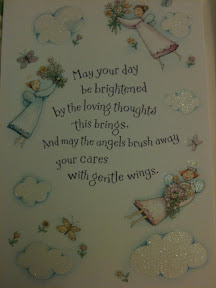 May your day
be brightened
by the loving thoughts
this brings,
And may the angels brush away
your cares
with gentle wings.